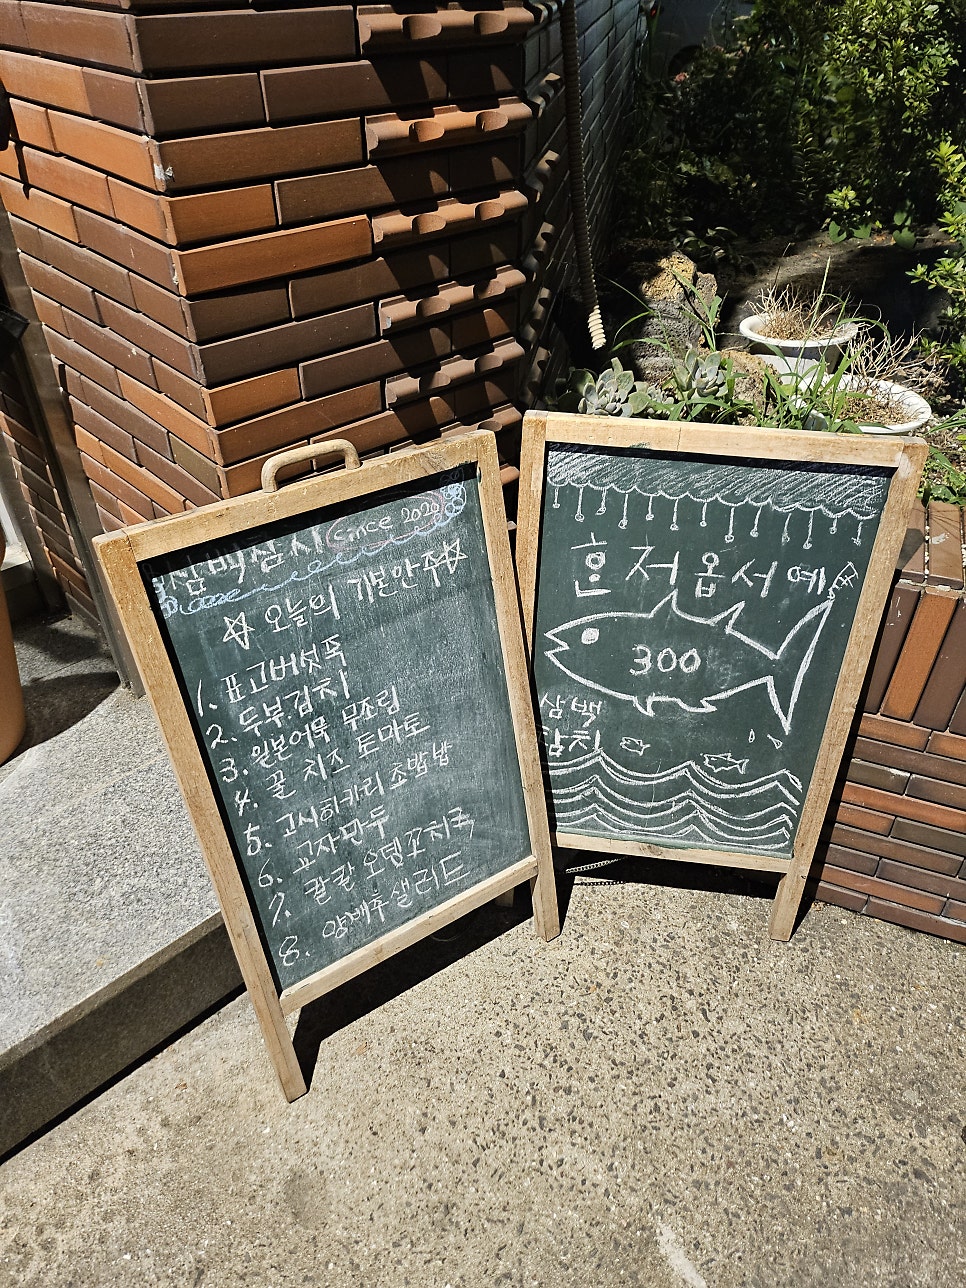 삼백참치 Since 2020
오늘의 기본안주
1. 표고버섯죽
2. 두부.김치
3. 일본어묵 무조림
4. 꿀 치즈 토마토
5. 고시히카리 초밥밥
6. 교자만두
7. 칼칼 오뎅꼬치국
8. 양배추 샐러드
혼저옵서예
300
삼백
참치